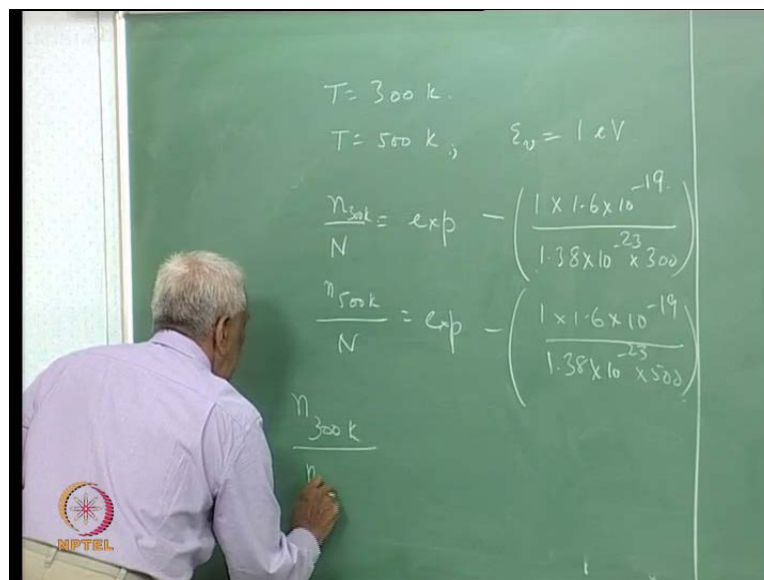 T = 300 k.
T = 500 k, ε_v = 1 eV
n_30k / N = exp - (1 × 1.6 × 10^-19 / 1.38 × 10^-23 × 300)
n_500k / N = exp - (1 × 1.6 × 10^-19 / 1.38 × 10^-23 × 500)
n_300k
n
NPTEL